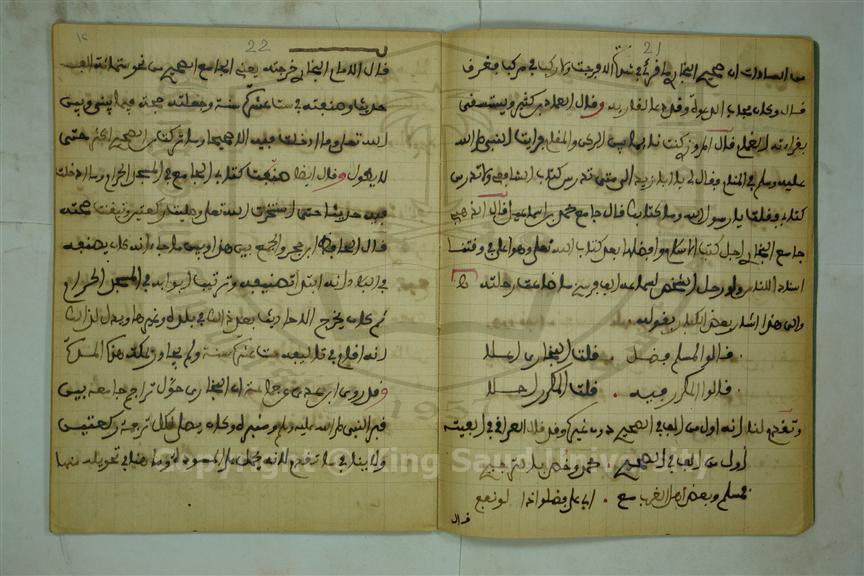 21
من السادات ان صحيح البخاري ما قرئ في شدة الا فرجت ولا ركب به في مركب فغرق
قال وكان مجاب الدعوة وقد دعا لقارئه وقال الحافظ ابن كثير ويستسقى
بقراءته الغمام قال المروزي كنت نائما بين الركن والمقام فرأيت النبي صلى الله
عليه وسلم في المنام فقال لي يا ابا زيد الى متى تدرس كتاب الشافعي ولا تدرس
كتابي فقلت يا رسول الله وما كتابك قال جامع محمد بن اسماعيل قال الذهبي
جامع البخاري اجل كتب الاسلام وافضلها بعد كتاب الله تعالى وهو اعلى في وقتنا
اسنادا للناس ولو رحل الشخص لسماعه من الف فرسخ ما ضاعت رحلته
والى هذا اشار بعض بقوله
قالوا لمسلم فضل . قلت البخاري اعلا
قالوا المكرر فيه . قلت المكرر احلا
وتقدم لنا انه اول من الف في الصحيح دون غيره وقد قال العراقي في الفيته
اول من الف في الصحيح . محمد وخص بالترجيح
فمسلم وبعض اهل الغرب مع . ابي علي فضلوا ذا لو نفع
قال
22
١٢
قال الامام البخاري خرجته يعني الجامع الصحيح من نحو ستمائة الف
حديث وصنفته في ست عشرة سنة وجعلته حجة فيما بيني وبين
الله تعالى وما ادخلت فيه الا صحيحا وما تركت من الصحيح اكثر حتى
لا يطول وقال ايضا صنفت كتابي الجامع في المسجد الحرام وما ادخلت
فيه حديثا حتى استخرت الله تعالى وصليت ركعتين وتيقنت صحته
قال الحافظ ابن حجر والجمع بين هذا وبين ما جاء انه كان يصنفه
في البلاد انه ابتدا تصنيفه وترتيب ابوابه في المسجد الحرام
ثم كان يخرج الاحاديث بعد ذلك في بلده وغيرها ويدل لذلك
انه اقام في تاليفه ست عشرة سنة ولم يجاور بمكة هذه المدة
وقد روى ابن عدي عن جماعة ان البخاري حول تراجم جامعه بين
قبر النبي صلى الله عليه وسلم ومنبره وكان يصلي لكل ترجمة ركعتين
ولا ينافي ما تقدم لانه يحمل على المسودة وما هنا في تحويله منها